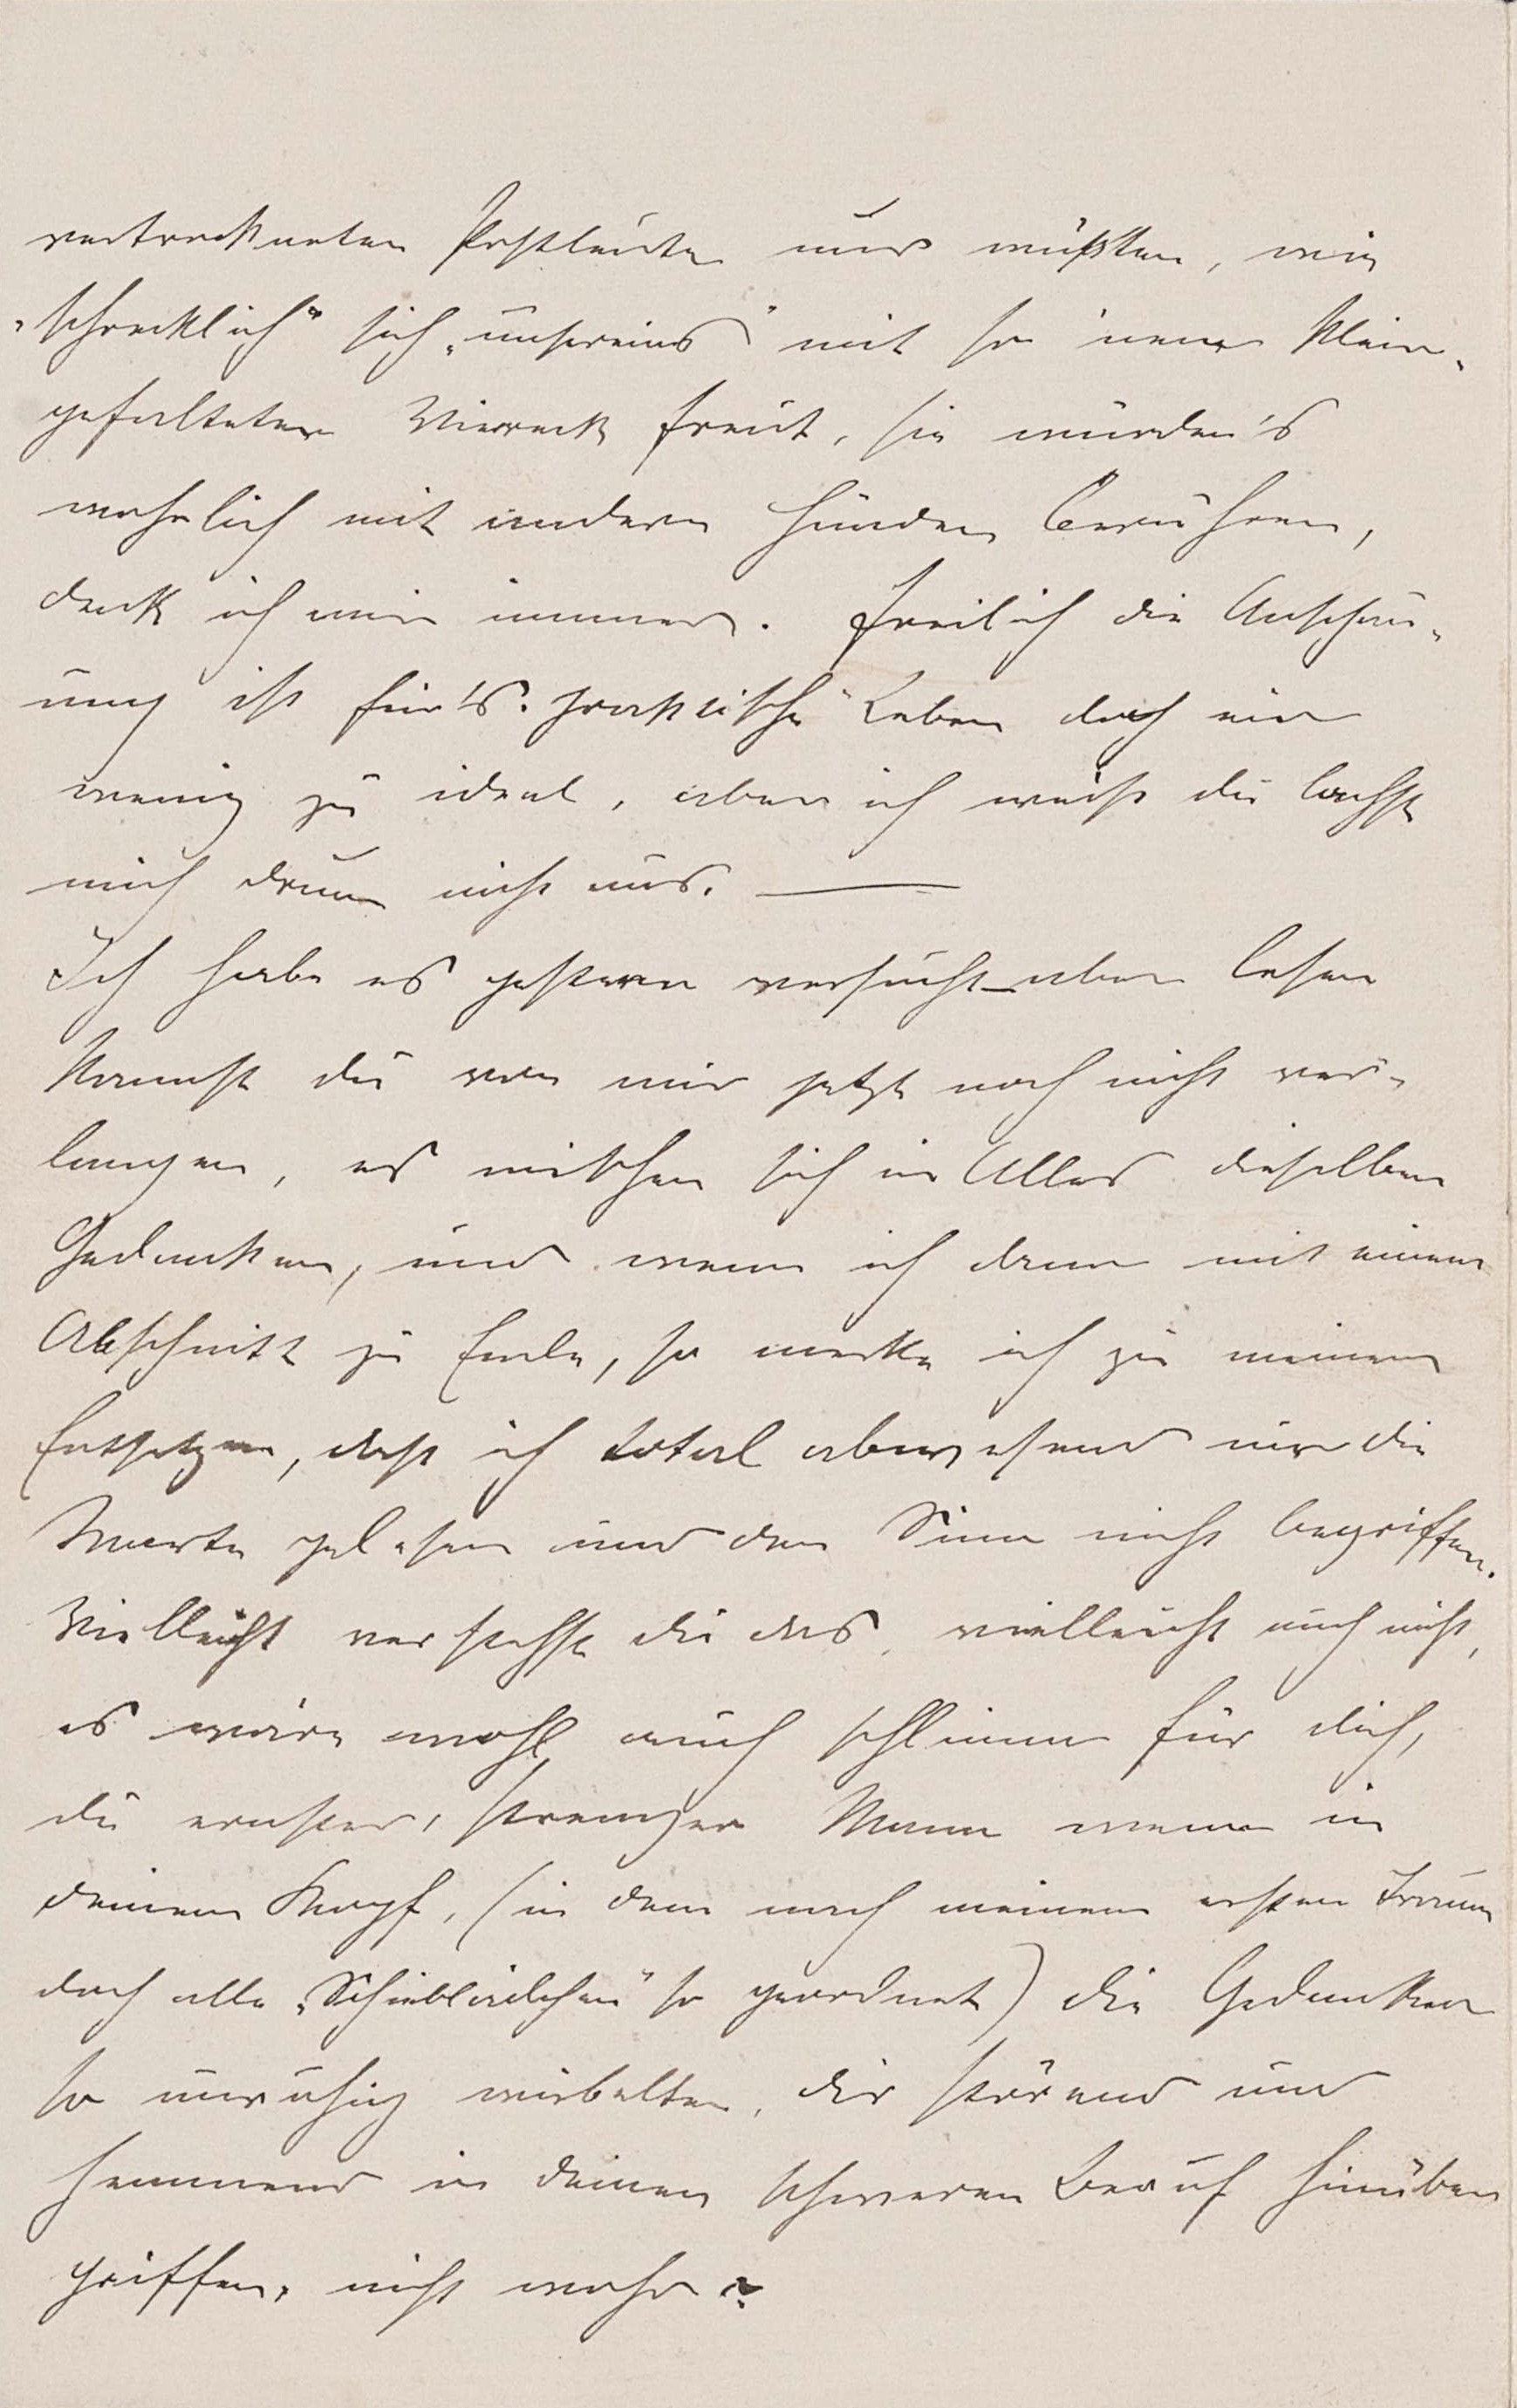 vertrockneten Postleute nur wüßten, wie
„schrecklich" sich „unsereins" mit so 'nem klein-
gefalteten Viereck freut, sie würden's
wahrlich mit andern Händen berühren,
denk ich mir immer. Freilich die Anschau-
ung ist für's „praktische" Leben doch ein
wenig zu ideal, aber ich weiß du lachst
mich drum nicht aus. —
Ich habe es gestern versucht – aber lesen
kannst du von mir jetzt noch nicht ver-
langen, es mischen sich in Alles dieselben
Gedanken, und wenn ich dann mit einem
Abschnitt zu Ende, so merke ich zu meinem
Entsetzen, daß ich total abwesend nur die
Worte gelesen und den Sinn nicht begriffen.
Vielleicht verstehst du das, vielleicht auch nicht,
es wäre wohl auch schlimm für dich,
du ernster, strenger Mann wenn in
deinem Kopf, (in dem nach meinem ersten Traum
doch alle „Schieblädchen" so geordnet) die Gedanken
so unruhig wirbelten, dir störend und
hemmend in deinen schweren Beruf hinüber
griffen, nicht wahr?